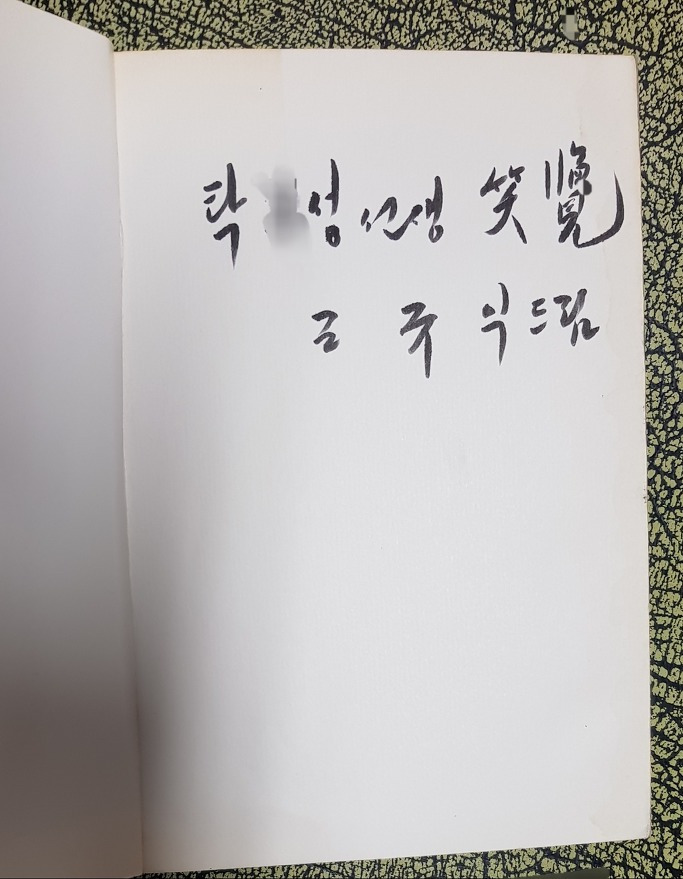 탁 성 선생 笑覽
금 국 익 드림